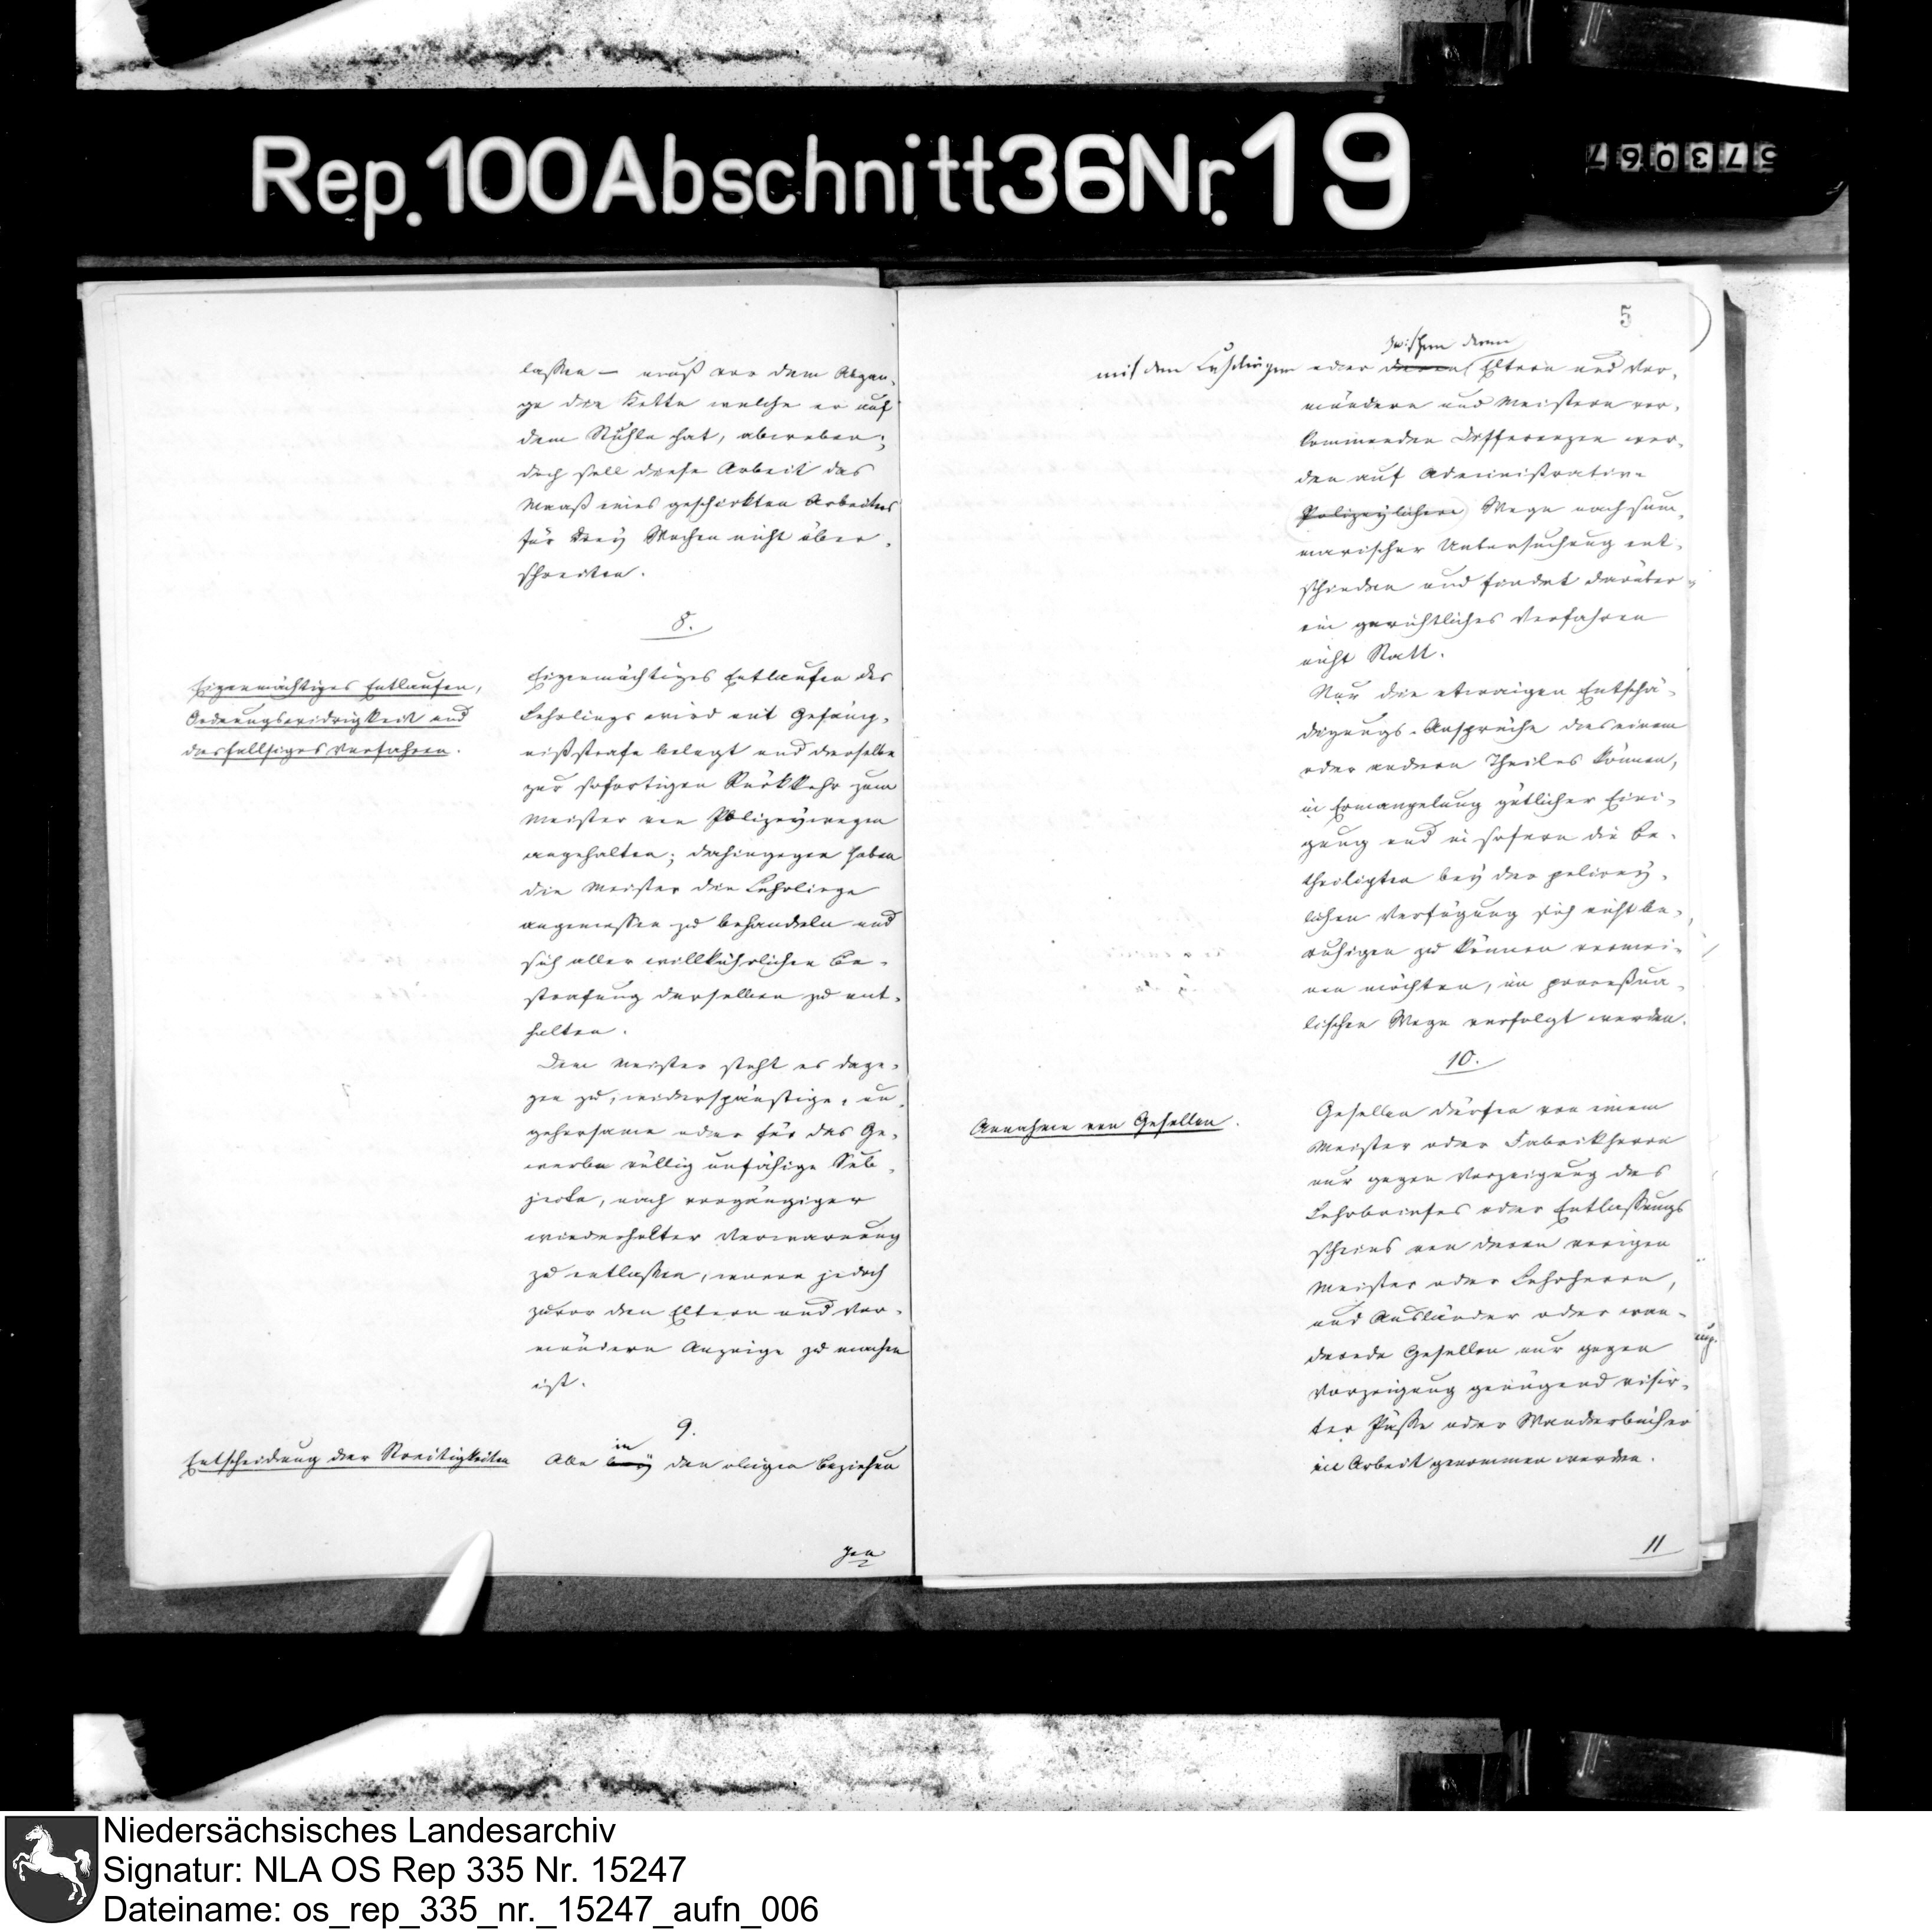 Rep. 100 Abschnitt 36 Nr. 19
573067
lassen – muß vor dem Abgan-
ge die Kette welche er auf
dem Stuhle hat, abweben;
doch soll diese Arbeit das
Maaß eines geschickten Arbeiters
für drey Wochen nicht über-
schreiten.
8.
Eigenmächtiges Entlaufen,
Ordnungswidrigkeit und
desfallsiges Verfahren.
Eigenmächtiges Entlaufen des
Lehrlings wird mit Gefäng-
nißstrafe belegt und derselbe
zur sofortigen Rückkehr zum
Meister von Polizeywegen
angehalten; dahingegen haben
die Meister die Lehrlinge
angemessen zu behandeln und
sich aller willkührlichen Be-
strafung derselben zu ent-
halten.
Dem Meister steht es dage-
gen zu, widerspänstige, un-
gehorsame oder für das Ge-
werbe völlig unfähige Sub-
jecte, nach vorgängiger
wiederholter Verwarnung
zu entlassen, wovon jedoch
zuvor den Eltern und Vor-
mündern Anzeige zu machen
ist.
9.
Entscheidung der Streitigkeiten
in
Alle bey den obigen Beziehun
gen
5
zwischen deren
mit den Lehrlingen oder deren Eltern und Vor-
mündern und Meistern vor-
kommenden Differenzen wer-
den auf Administrative
Polizeylichem Wege nach sum-
marischer Untersuchung ent-
schieden und findet darüber
ein gerichtliches Verfahren
nicht Statt.
Nur die etwaigen Entschä-
digungs-Ansprüche des einen
oder andern Theiles können,
in Ermangelung gütlicher Eini-
gung und in sofern die Be-
theiligten bey der polizey-
lichen Verfügung sich nicht be-
ruhigen zu können vermei-
nen möchten, im proceßua-
lischen Wege verfolgt werden.
10.
Annahme von Gesellen.
Gesellen dürfen von einem
Meister oder Fabrikherrn
nur gegen Vorzeigung des
Lehrbriefes oder Entlassungs
scheins von deren vorigen
Meister oder Lehrherrn,
und Ausländer oder wan-
dernde Gesellen nur gegen
Vorzeigung genügend visir-
ter Pässe oder Wanderbücher
in Arbeit genommen werden.
11
Niedersächsisches Landesarchiv
Signatur: NLA OS Rep 335 Nr. 15247
Dateiname: os_rep_335_nr._15247_aufn_006